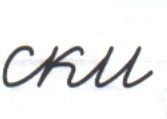 ски